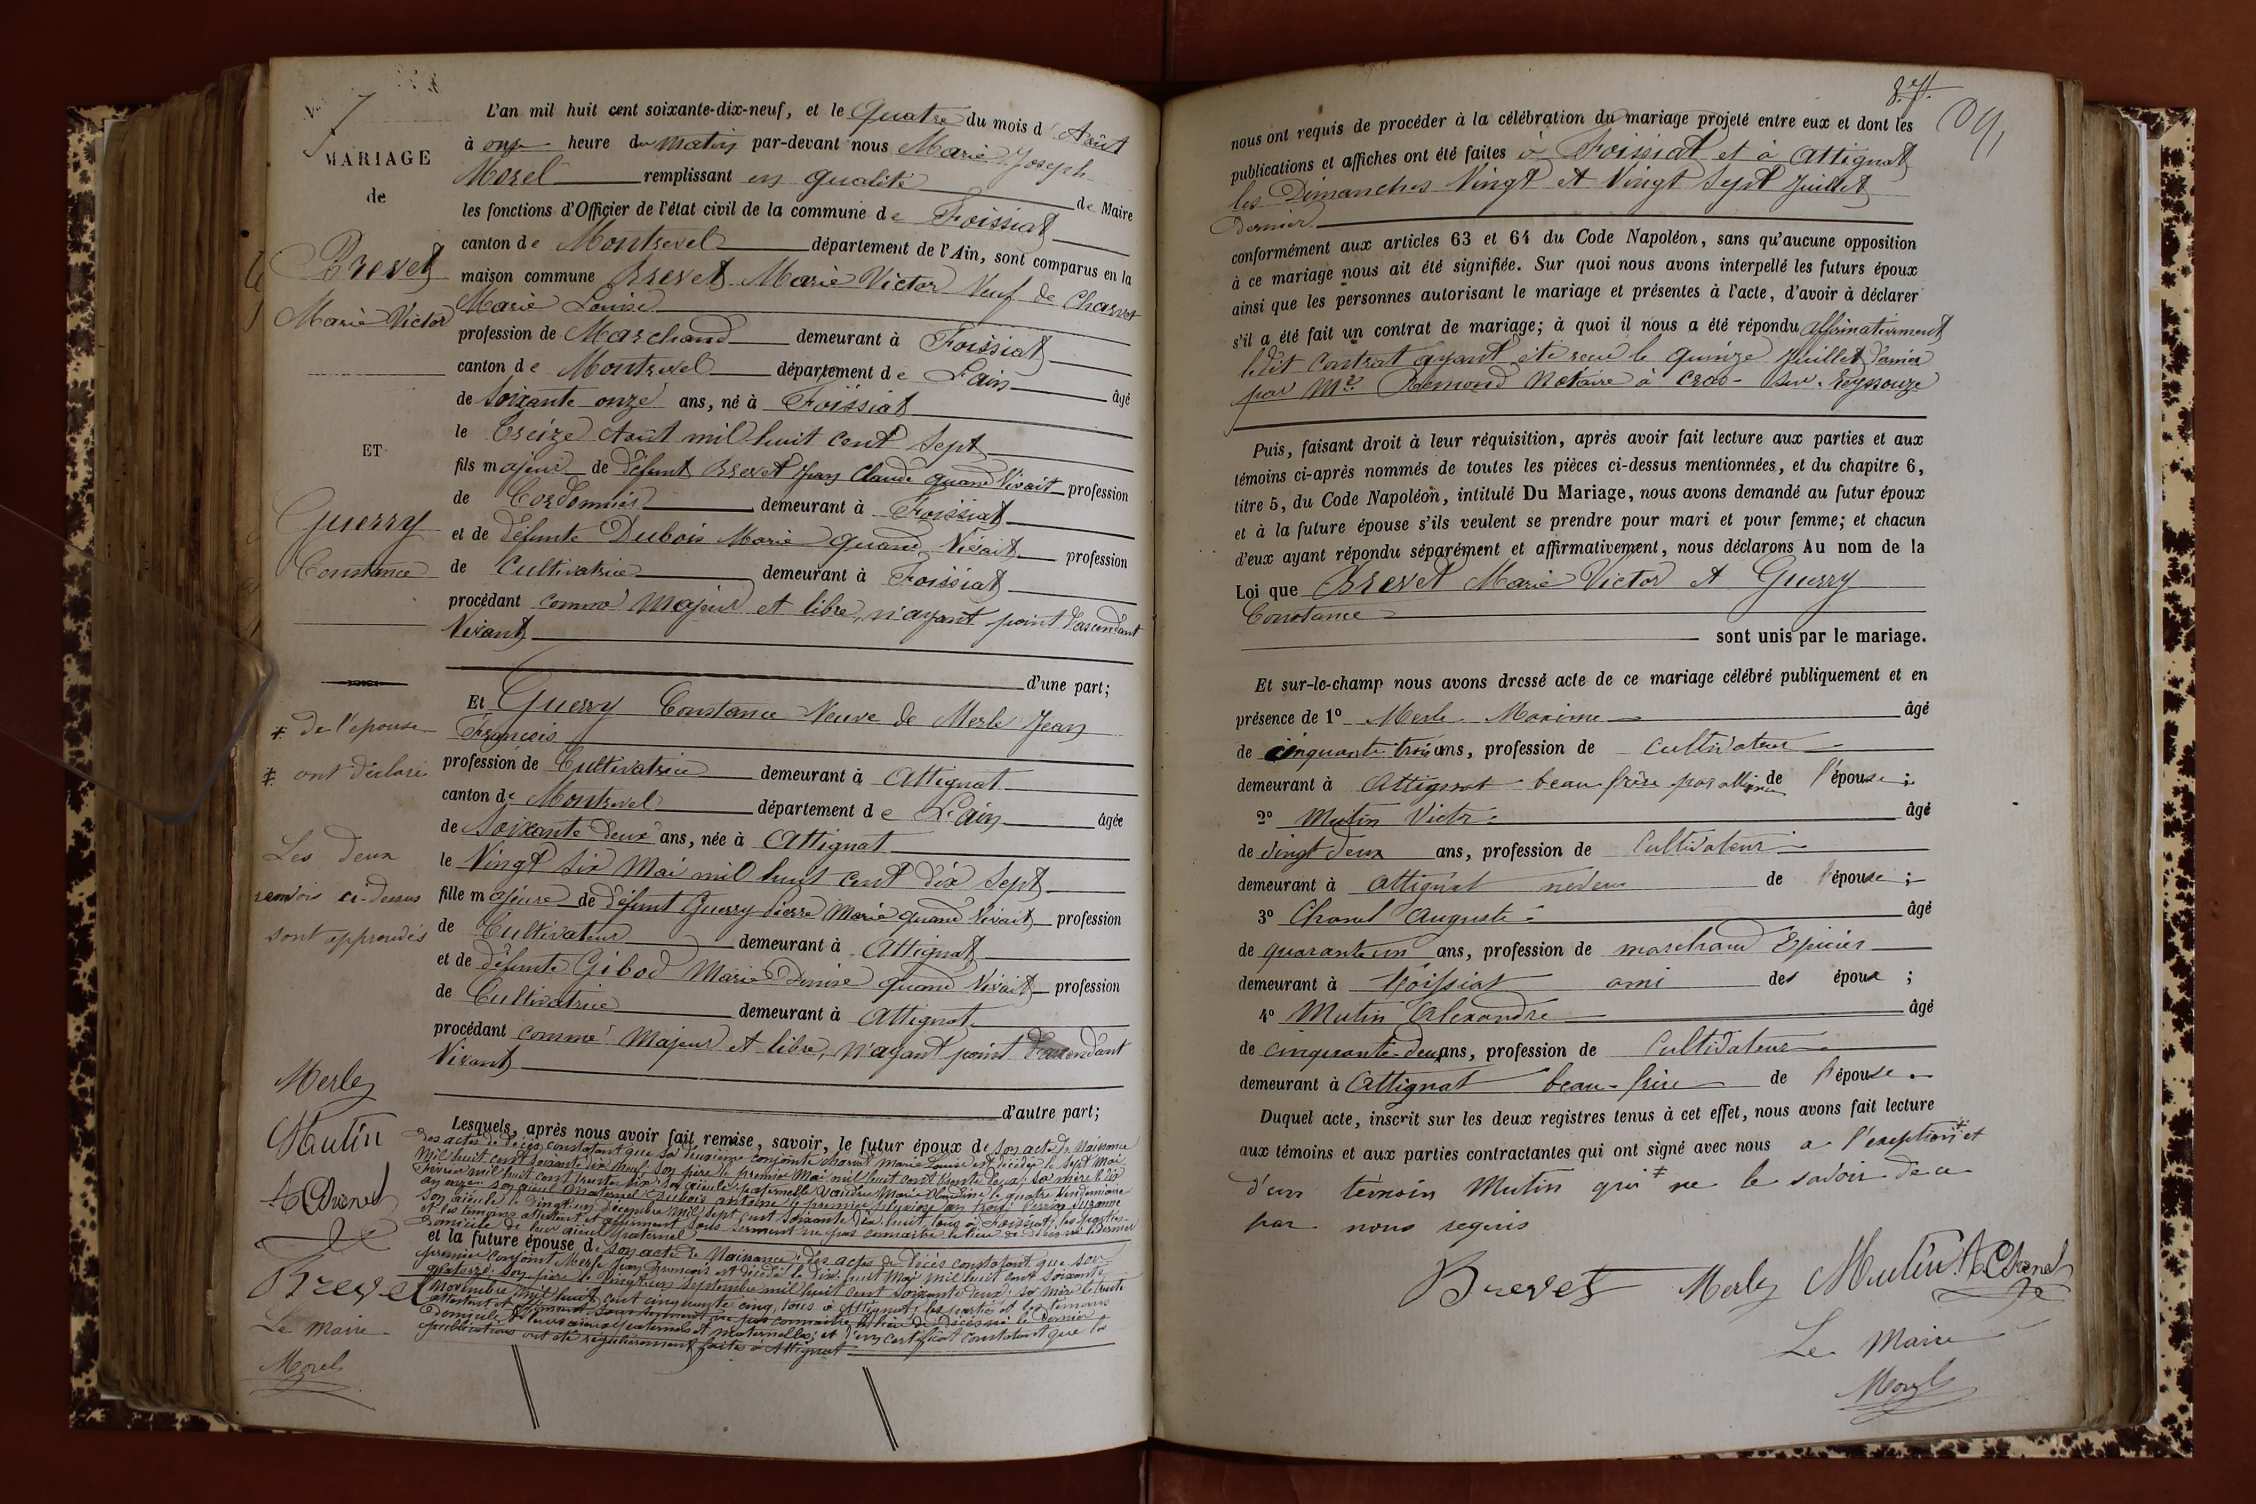 N° 7
MARIAGE
de
Brevet
Marie Victor
ET
Guerry
Constance
de l'épouse
ont déclaré
Les deux
renvois ci-dessus
sont approuvés
Merle
Mutin
Chanel
Brevet
Le Maire
Morel
L'an mil huit cent soixante-dix-neuf, et le Quatre du mois d'Août
à onze heure du Matin par-devant nous Marie Joseph
Morel remplissant en qualité de Maire
les fonctions d'Officier de l'état civil de la commune de Foissiat
canton de Montrevel département de l'Ain, sont comparus en la
maison commune Brevet Marie Victor Veuf de Charvet
Marie Louise
profession de Marchand demeurant à Foissiat
canton de Montrevel département de L'ain âgé
de Soixante onze ans, né à Foissiat
le Treize Août mil huit cent Sept
fils majeur de défunt Brevet Jean Claude quand Vivait profession
de Cordonnier demeurant à Foissiat
et de défunte Dubois Marie quand Vivait profession
de Cultivatrice demeurant à Foissiat
procédant comme Majeur et libre, n'ayant point d'ascendant
Vivant
d'une part;
Et Guerry Constance Veuve de Merle Jean
François
profession de Cultivatrice demeurant à Attignat
canton de Montrevel département de L'ain âgée
de Soixante deux ans, née à Attignat
le Vingt Six Mai mil huit cent dix Sept
fille majeure de défunt Guerry Pierre Marie quand Vivait profession
de Cultivateur demeurant à Attignat
et de défunte Gibod Marie Denise quand Vivait profession
de Cultivatrice demeurant à Attignat
procédant comme Majeur et libre, n'ayant point d'ascendant
Vivant
d'autre part;
Lesquels, après nous avoir fait remise, savoir, le futur époux de Son acte de Naissance
des actes de décès constatant que sa deuxième conjointe Charvet Marie Louise est décédée le Sept Mai
mil huit cent soixante dix neuf, son père le premier Mai mil huit cent trente deux, sa mère le dix
Février mil huit cent trente six, son aïeule paternelle Marie Claudine le quatre Vendémiaire
an onze, son aïeul maternel Dubois Antoine le premier pluviôse an trois, Perrin Suzanne
son aïeule le Vingt un Décembre mil sept cent soixante dix huit, tous à Foissiat, les parties
et les témoins attestent et affirment sous serment ne pas connaitre le lieu de décès ni le dernier
domicile de leur aïeul paternel
et la future épouse de son acte de Naissance, des actes de décès constatant que son
premier conjoint Merle Jean François est décédé le dix huit Mai mil huit cent soixante
quatorze, son père le Vingt un Septembre mil huit cent soixante deux, sa mère le trente
Novembre mil huit cent cinquante cinq, tous à Attignat, les parties et les témoins
attestent et affirment sous serment ne pas connaitre le lieu de décès ni le dernier
domicile de leurs aïeux paternels et maternelles, et d'un certificat constatant que les
publications ont été régulièrement faites à Attignat
87
nous ont requis de procéder à la célébration du mariage projeté entre eux et dont les
publications et affiches ont été faites à Foissiat et à Attignat
les Dimanches Vingt et Vingt Sept Juillet
dernier
conformément aux articles 63 et 64 du Code Napoléon, sans qu'aucune opposition
à ce mariage nous ait été signifiée. Sur quoi nous avons interpellé les futurs époux
ainsi que les personnes autorisant le mariage et présentes à l'acte, d'avoir à déclarer
s'il a été fait un contrat de mariage; à quoi il nous a été répondu affirmativement
ledit contrat ayant été reçu le quinze Juillet dernier
par Me Notaire à Cras-Sur-Reyssouze
Puis, faisant droit à leur réquisition, après avoir fait lecture aux parties et aux
témoins ci-après nommés de toutes les pièces ci-dessus mentionnées, et du chapitre 6,
titre 5, du Code Napoléon, intitulé Du Mariage, nous avons demandé au futur époux
et à la future épouse s'ils veulent se prendre pour mari et pour femme; et chacun
d'eux ayant répondu séparément et affirmativement, nous déclarons Au nom de la
Loi que Brevet Marie Victor et Guerry
Constance
sont unis par le mariage.
Et sur-le-champ nous avons dressé acte de ce mariage célébré publiquement et en
présence de 1° Merle Maxime âgé
de cinquante trois ans, profession de cultivateur
demeurant à Attignat beau frère par alliance de l'épouse;
2° Mutin Victor âgé
de vingt deux ans, profession de Cultivateur
demeurant à Attignat neveu de l'épouse;
3° Chanel Auguste âgé
de quarante un ans, profession de marchand Epicier
demeurant à Foissiat ami des époux;
4° Mutin Alexandre âgé
de cinquante-deux ans, profession de Cultivateur
demeurant à Attignat beau-frère de l'épouse.
Duquel acte, inscrit sur les deux registres tenus à cet effet, nous avons fait lecture
aux témoins et aux parties contractantes qui ont signé avec nous a l'exeption et
d'un témoin Mutin qui ne le savoir de ce
par nous requis
Brevet Merle Mutin Chanel
Le Maire
Morel